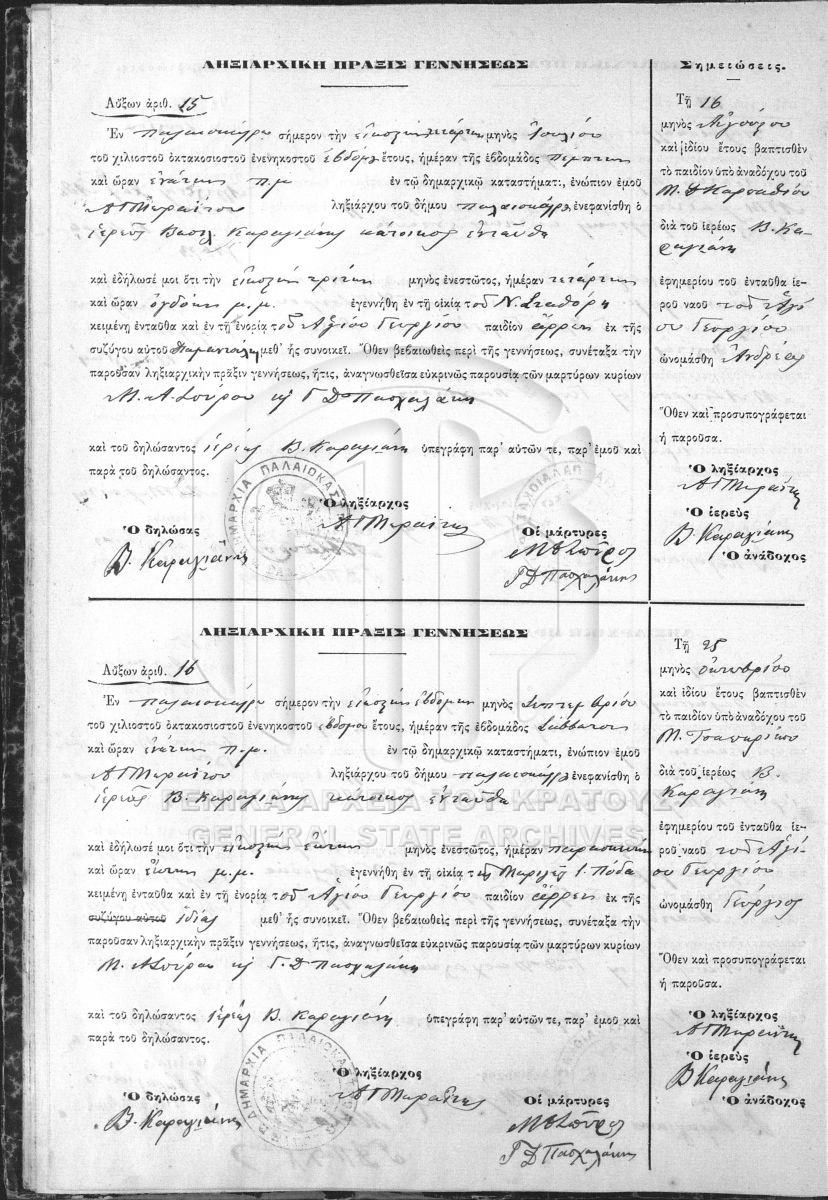 ΛΗΞΙΑΡΧΙΚΗ ΠΡΑΞΙΣ ΓΕΝΝΗΣΕΩΣ
Αὔξων ἀριθ. 15
Ἐν σήμερον τὴν εἰκοστὴν τετάρτην μηνὸς Ἰουλίου
τοῦ χιλιοστοῦ ὀκτακοσιοστοῦ ἐνενηκοστοῦ ἑβδόμου ἔτους, ἡμέραν τῆς ἑβδομάδος πέμπτην
καὶ ὥραν ἐνάτην π.μ. ἐν τῷ δημαρχικῷ καταστήματι, ἐνώπιον ἐμοῦ
ληξιάρχου τοῦ δήμου ἐνεφανίσθη ὁ
ἱερεὺς Βασιλ. Καραγιάνης κάτοικος ἐνταῦθα
καὶ ἐδήλωσέ μοι ὅτι τὴν εἰκοστὴν τρίτην μηνὸς ἐνεστῶτος, ἡμέραν τετάρτην
καὶ ὥραν ὀγδόην μ.μ. ἐγεννήθη ἐν τῇ οἰκίᾳ τοῦ Ν.
κειμένῃ ἐνταῦθα καὶ ἐν τῇ ἐνορίᾳ τοῦ Ἁγίου Γεωργίου παιδίον ἄρρεν ἐκ τῆς
συζύγου αὐτοῦ μεθ' ἧς συνοικεῖ. Ὅθεν βεβαιωθεὶς περὶ τῆς γεννήσεως, συνέταξα τὴν
παροῦσαν ληξιαρχικὴν πρᾶξιν γεννήσεως, ἥτις, ἀναγνωσθεῖσα εὐκρινῶς παρουσίᾳ τῶν μαρτύρων κυρίων
Γ. Δ. Πασχαλάκη
καὶ τοῦ δηλώσαντος ἱερέως Β. Καραγιάνη ὑπεγράφη παρ' αὐτῶν τε, παρ' ἐμοῦ καὶ
παρὰ τοῦ δηλώσαντος.
Ὁ ληξίαρχος
Ὁ δηλώσας
Οἱ μάρτυρες
Β. Καραγιάνης
Γ Δ Πασχαλάκης
Σημειώσεις.
Τῇ 16
μηνὸς Αὐγούστου
καὶ ἰδίου ἔτους βαπτισθὲν
τὸ παιδίον ὑπὸ ἀναδόχου τοῦ
διὰ τοῦ ἱερέως Β. Κα-
ραγιάνη
ἐφημερίου τοῦ ἐνταῦθα ἱε-
ροῦ ναοῦ τοῦ Ἁγί-
ου Γεωργίου
ὠνομάσθη Ἀνδρέας
Ὅθεν καὶ προσυπογράφεται
ἡ παροῦσα.
Ὁ ληξίαρχος
Ὁ ἱερεὺς
Β Καραγιάνης
Ὁ ἀνάδοχος
ΛΗΞΙΑΡΧΙΚΗ ΠΡΑΞΙΣ ΓΕΝΝΗΣΕΩΣ
Αὔξων ἀριθ. 16
Ἐν σήμερον τὴν εἰκοστὴν ἑβδόμην μηνὸς Σεπτεμβρίου
τοῦ χιλιοστοῦ ὀκτακοσιοστοῦ ἐνενηκοστοῦ ἑβδόμου ἔτους, ἡμέραν τῆς ἑβδομάδος Σάββατον
καὶ ὥραν ἐνάτην π.μ. ἐν τῷ δημαρχικῷ καταστήματι, ἐνώπιον ἐμοῦ
ληξιάρχου τοῦ δήμου ἐνεφανίσθη ὁ
ἱερεὺς Β. Καραγιάνης κάτοικος ἐνταῦθα
καὶ ἐδήλωσέ μοι ὅτι τὴν εἰκοστὴν ἕκτην μηνὸς ἐνεστῶτος, ἡμέραν παρασκευὴν
καὶ ὥραν ἕκτην μ.μ. ἐγεννήθη ἐν τῇ οἰκίᾳ τῆς
κειμένῃ ἐνταῦθα καὶ ἐν τῇ ἐνορίᾳ τοῦ Ἁγίου Γεωργίου παιδίον ἄρρεν ἐκ τῆς
συζύγου αὐτοῦ ἰδίας μεθ' ἧς συνοικεῖ. Ὅθεν βεβαιωθεὶς περὶ τῆς γεννήσεως, συνέταξα τὴν
παροῦσαν ληξιαρχικὴν πρᾶξιν γεννήσεως, ἥτις, ἀναγνωσθεῖσα εὐκρινῶς παρουσίᾳ τῶν μαρτύρων κυρίων
Γ. Δ Πασχαλάκη
καὶ τοῦ δηλώσαντος ἱερέως Β. Καραγιάνη ὑπεγράφη παρ' αὐτῶν τε, παρ' ἐμοῦ καὶ
παρὰ τοῦ δηλώσαντος.
Ὁ ληξίαρχος
Ὁ δηλώσας
Οἱ μάρτυρες
Β. Καραγιάνης
Γ Δ Πασχαλάκης
Τῇ 25
μηνὸς Ὀκτωβρίου
καὶ ἰδίου ἔτους βαπτισθὲν
τὸ παιδίον ὑπὸ ἀναδόχου τοῦ
διὰ τοῦ ἱερέως Β.
Καραγιάνη
ἐφημερίου τοῦ ἐνταῦθα ἱε-
ροῦ ναοῦ τοῦ Ἁγί-
ου Γεωργίου
ὠνομάσθη Γεώργιος
Ὅθεν καὶ προσυπογράφεται
ἡ παροῦσα.
Ὁ ληξίαρχος
Ὁ ἱερεὺς
Β Καραγιάνης
Ὁ ἀνάδοχος
ΓΕΝΙΚΑ ΑΡΧΕΙΑ ΤΟΥ ΚΡΑΤΟΥΣ
GENERAL STATE ARCHIVES